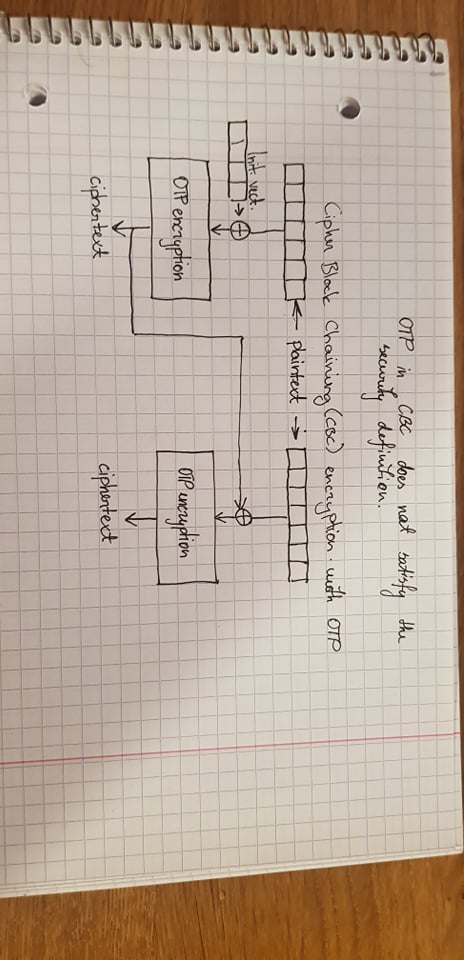 OTP in CBC does not satisfy the
security definition.
Cipher Block Chaining (CBC) encryption. with OTP
← plaintext →
Init. vect.
OTP encryption
OTP encryption
ciphertext
ciphertext